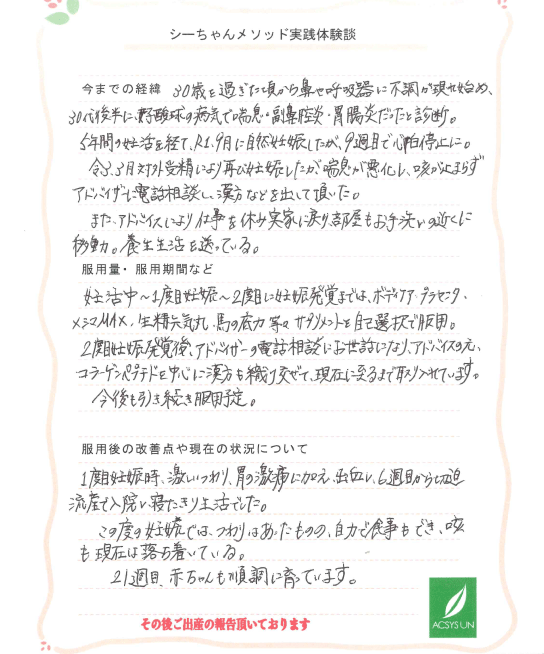 シーちゃんメソッド実践体験談
今までの経緯 30歳を過ぎた頃から鼻や呼吸器に不調が現れ始め、
30代後半に好酸球の病気で喘息・副鼻腔炎・胃腸炎だったと診断。
5年間の妊活を経て、R1.9月に自然妊娠したが、9週目で心拍停止に。
令3.3月 体外受精により再び妊娠したが、喘息が悪化し、咳が止まらず
アドバイザーに電話相談し、漢方などを出して頂いた。
また、アドバイスにより仕事を休み実家に戻り、部屋もお手洗いの近くに
移動。養生生活を送っている。
服用量・服用期間など
妊活中～1度目妊娠～2度目に妊娠発覚までは、ボディケア・プラセンタ、
メシマMAX、生精六気丸、馬の底力 等々 サプリメントを自己選択で服用。
2度目妊娠発覚後、アドバイザーの電話相談にお世話になり、アドバイスのもと、
コラーゲンペプチドを中心に漢方も織り交ぜて、現在に至るまで取り入れています。
今後も引き続き服用予定。
服用後の改善点や現在の状況について
1度目妊娠時、激しいつわり、胃の激痛に加え、出血し、6週目から切迫
流産で入院し寝たきり生活でした。
この度の妊娠では、つわりはあったものの、自力で食事もでき、咳
も現在は落ち着いている。
21週目、赤ちゃんも順調に育っています。
その後ご出産の報告頂いております
ACSYSUN